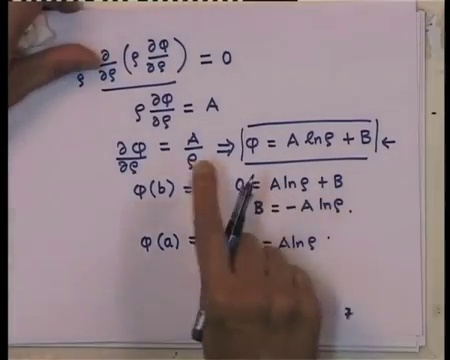 ρ ∂/∂ρ (ρ ∂φ/∂ρ) = 0
ρ ∂φ/∂ρ = A
∂φ/∂ρ = A/ρ ⇒ φ = A lnρ + B ←
φ(b) = 0 = A lnρ + B
B = -A lnρ.
φ(a) = - A lnρ
7